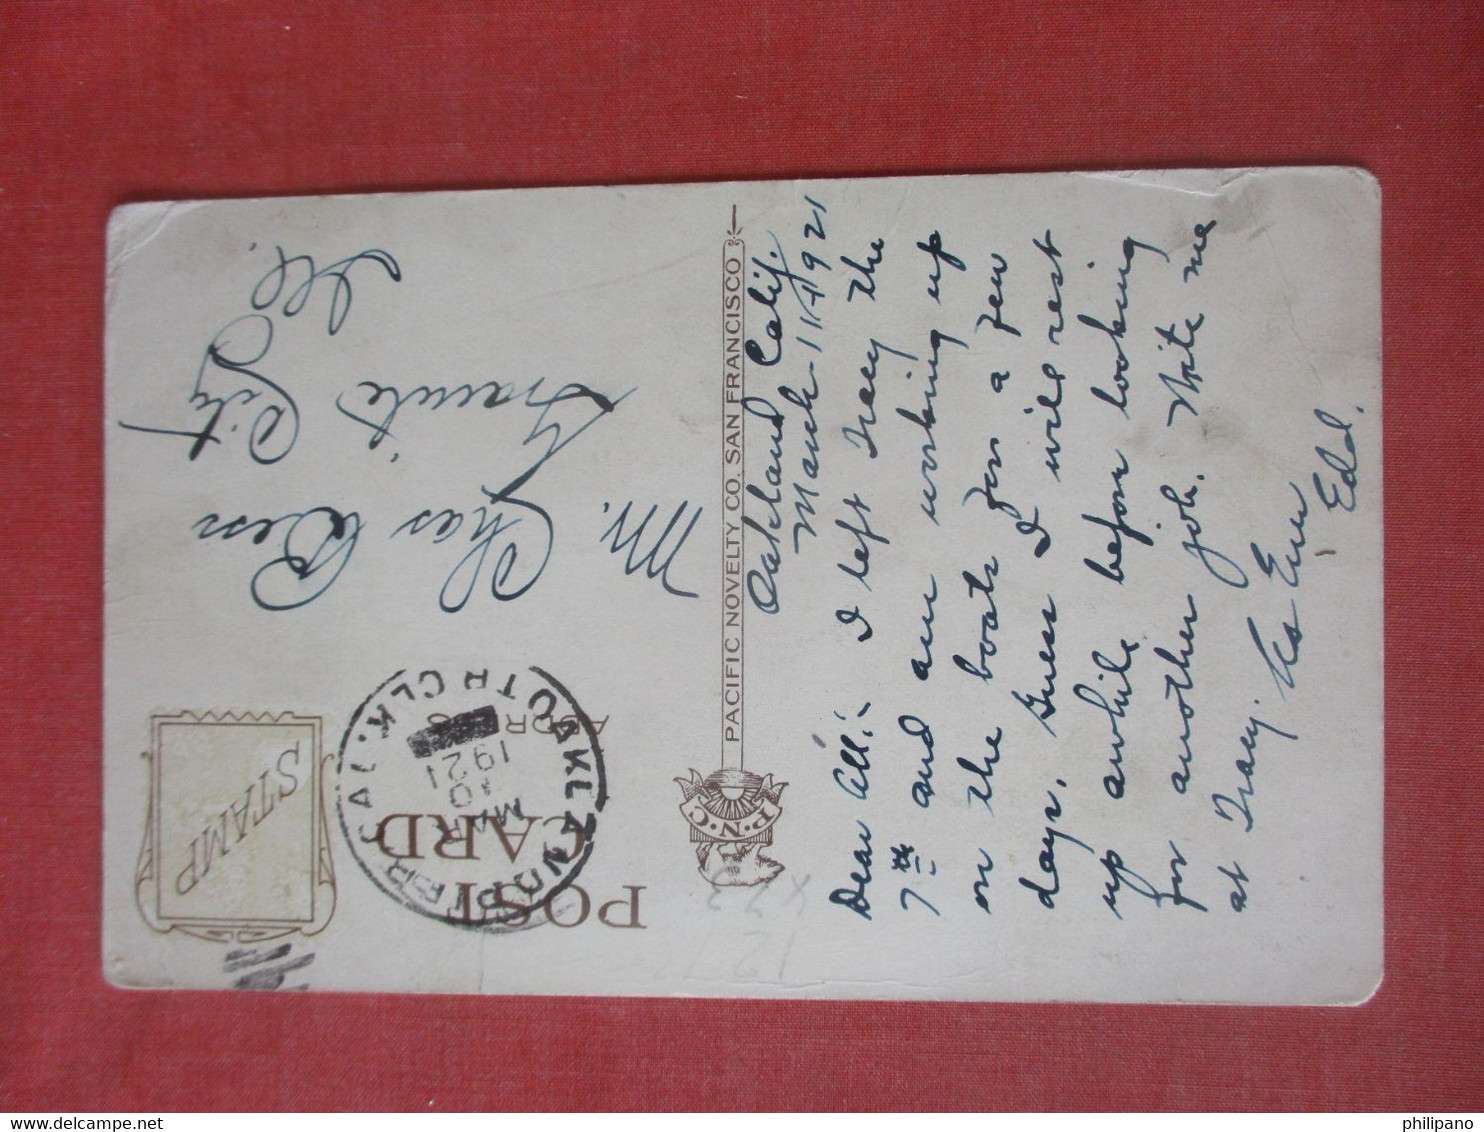 Oakland Calif.
March 11th 1921
Dear All:- I left Tracy the
7th and am working up
on the boats for a few
days. Guess I will rest
up awhile before looking
for another job. Write me
at Tracy. As Ever
Edd.
PACIFIC NOVELTY CO. SAN FRANCISCO
P.N.C.
POST CARD
ADDR
STAMP
OAKLAND CAL.
MAR
10
1921
Mr. Chas
Granite City
Ill.
philipano